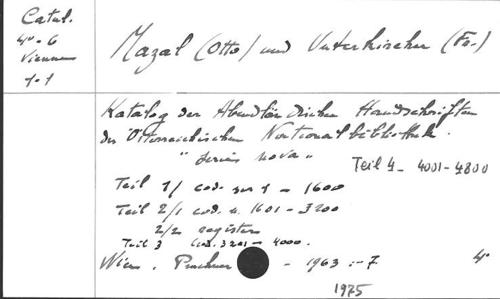 Catal.
4º - 6
Vienne
1-1
Mazal (Otto) und Unterkircher (Fr.)
Katalog der Abendländischen Handschriften
der Österreichischen Nationalbibliothek.
"Series nova"
Teil 4 - 4001-4800
Teil 1/ cod. ser 1 - 1600
Teil 2/1 cod. n. 1601 - 3200
2/2 register
Teil 3 Cod. 3201 - 4000.
Wien. Prachner - 1963 :- 7 4º
1975